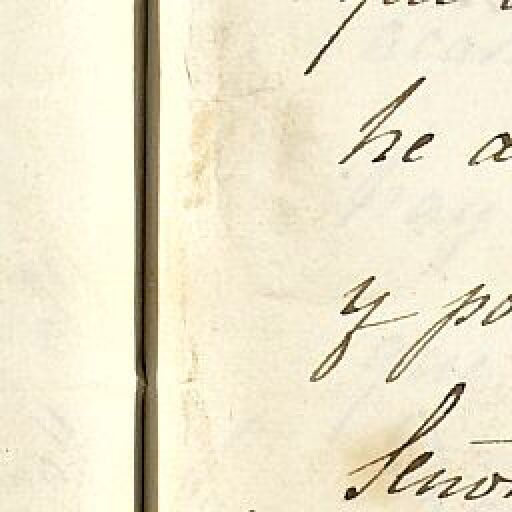 he a
y po
Señor